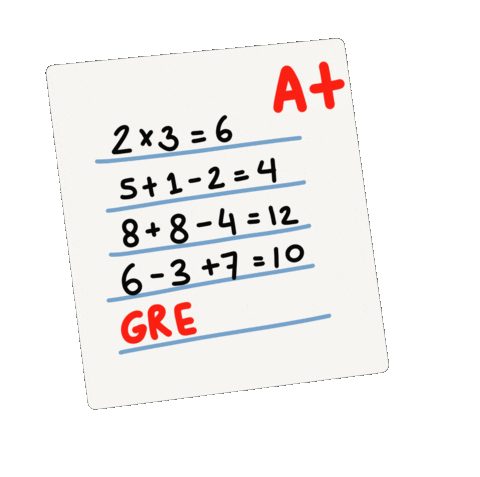 A+
2×3=6
5+1-2=4
8+8-4=12
6-3+7=10
GRE